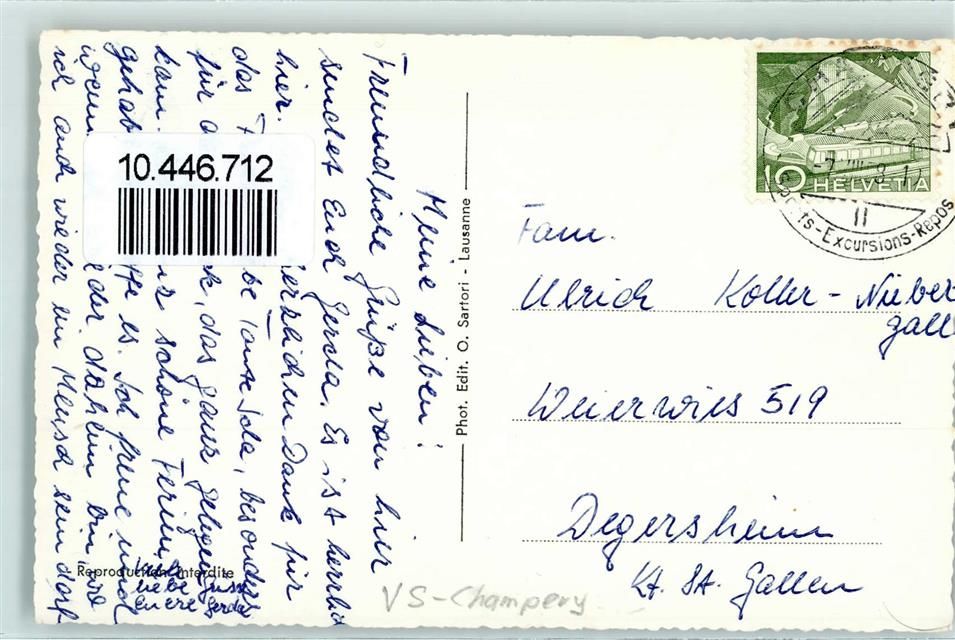 Meine Lieben!
Freundliche Grüße von hier
sendet Euch Gerda. Es ist herrlich
hier. herzlichen Dank für
das be Tante Ida, besonders
für das ganz
kam. schöne Ferien
gehabt es. Ich freue mich
wieder daheim bin wo
ich auch wieder ein Mensch sein darf
Viele
liebe Grüsse
Euere Gerda
10.446.712
Reproduction interdite
Phot. Edit. O. Sartori - Lausanne
10 HELVETIA
II
Sports-Excursions-Repos
Fam.
Ulrich Koller - Nieder
gall
Weierwies 519
Degersheim
Kt. St. Gallen
VS-Champery